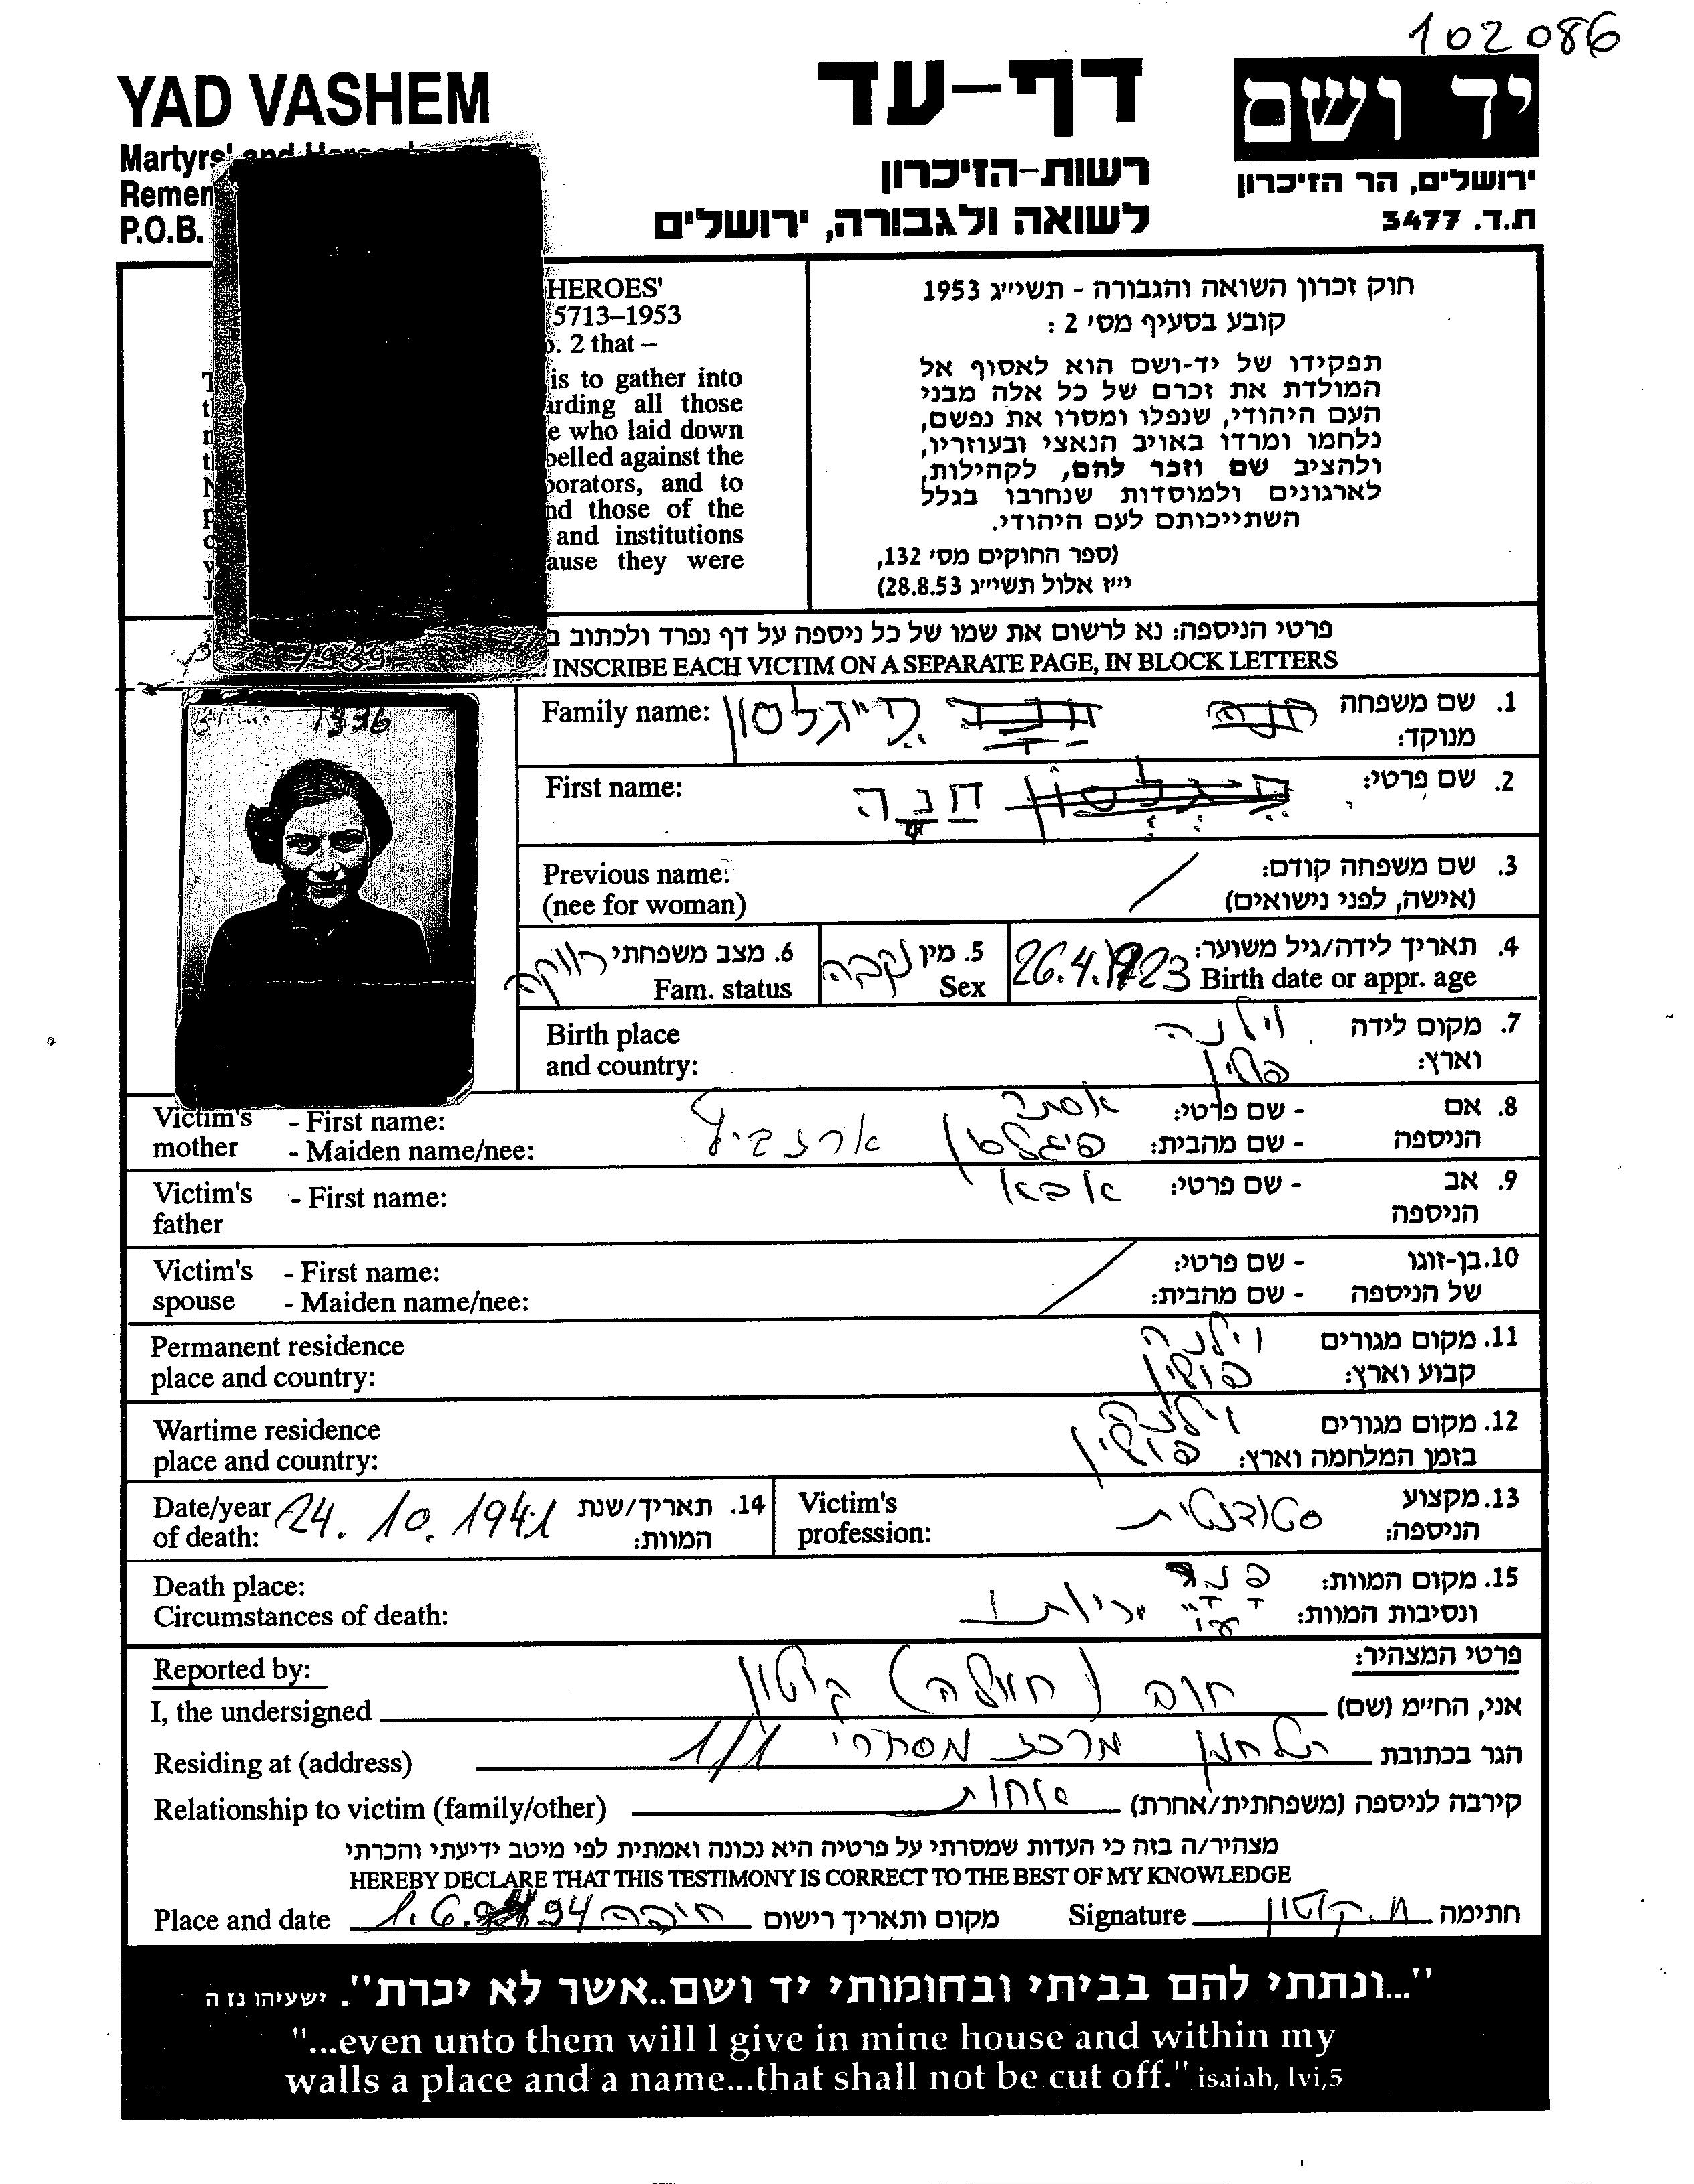 102086
YAD VASHEM
דף-עד
יד ושם
Martyrs' and
Remem
P.O.B.
רשות-הזיכרון
לשואה ולגבורה, ירושלים
ירושלים, הר הזיכרון
ת.ד. 3477
HEROES'
5713–1953
. 2 that –
is to gather into
all those
who laid down
against the
and to
those of the
and institutions
they were
חוק זכרון השואה והגבורה - תשי״ג 1953
קובע בסעיף מס׳ 2 :
תפקידו של יד-ושם הוא לאסוף אל
המולדת את זכרם של כל אלה מבני
העם היהודי, שנפלו ומסרו את נפשם,
נלחמו ומרדו באויב הנאצי ובעוזריו,
ולהציב שם וזכר להם, לקהילות,
לארגונים ולמוסדות שנחרבו בגלל
השתייכותם לעם היהודי.
(ספר החוקים מס׳ 132,
י״ז אלול תשי״ג 28.8.53)
פרטי הניספה: נא לרשום את שמו של כל ניספה על דף נפרד ולכתוב
INSCRIBE EACH VICTIM ON A SEPARATE PAGE, IN BLOCK LETTERS
1939
1936
1. שם משפחה
מנוקד:
Family name:
2. שם פרטי: חנה
First name:
3. שם משפחה קודם:
(אישה, לפני נישואים)
Previous name:
(nee for woman)
4. תאריך לידה/גיל משוער: 26.4.1923
Birth date or appr. age
5. מין נקבה
Sex
6. מצב משפחתי רווקה
Fam. status
7. מקום לידה וילנה
וארץ: פולין
Birth place
and country:
8. אם - שם פרטי: אסתר
הניספה - שם מהבית:
Victim's - First name:
mother - Maiden name/nee:
9. אב - שם פרטי: אבא
הניספה
Victim's - First name:
father
10. בן-זוגו - שם פרטי:
של הניספה - שם מהבית:
Victim's - First name:
spouse - Maiden name/nee:
11. מקום מגורים וילנה
קבוע וארץ: פולין
Permanent residence
place and country:
12. מקום מגורים וילנה
בזמן המלחמה וארץ: פולין
Wartime residence
place and country:
13. מקצוע סטודנטית
הניספה:
Victim's
profession:
14. תאריך/שנת 24.10.1941
המוות:
Date/year
of death:
15. מקום המוות:
ונסיבות המוות:
Death place:
Circumstances of death:
פרטי המצהיר:
Reported by:
אני, החי״מ (שם)
I, the undersigned
הגר בכתובת מרכז מסחרי 1/1
Residing at (address)
קירבה לניספה (משפחתית/אחרת) אחות
Relationship to victim (family/other)
מצהיר/ה בזה כי העדות שמסרתי על פרטיה היא נכונה ואמתית לפי מיטב ידיעתי והכרתי
HEREBY DECLARE THAT THIS TESTIMONY IS CORRECT TO THE BEST OF MY KNOWLEDGE
Place and date 1.6. 94 חיפה מקום ותאריך רישום
Signature חתימה
"...ונתתי להם בביתי ובחומותי יד ושם..אשר לא יכרת". ישעיהו נו ה
"...even unto them will I give in mine house and within my
walls a place and a name...that shall not be cut off." isaiah, lvi,5